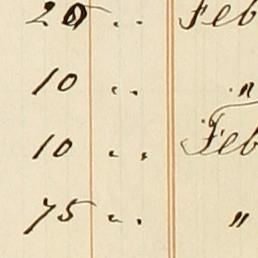 20 „ Feb
10 „ "
10 „ Feb
75 „ "